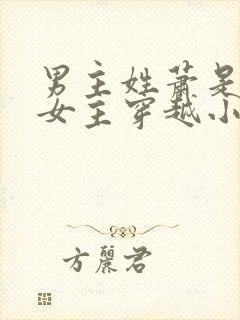 男主姓萧是
女主穿越小
方丽君